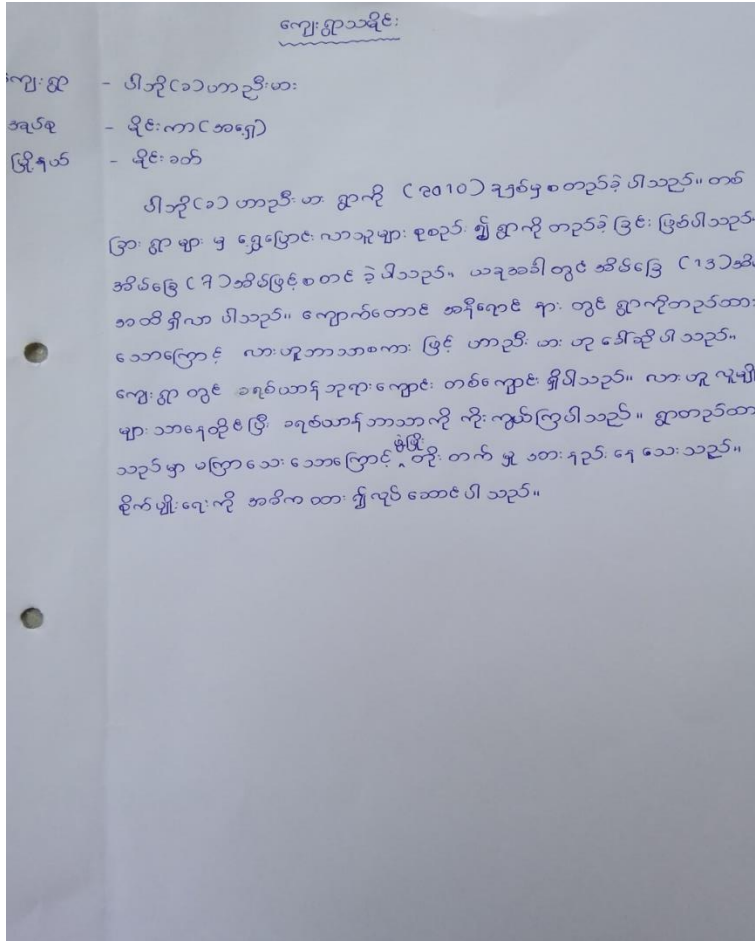 ကျေးရွာသမိုင်း
ကျေးရွာ - ပါဘို(ခ)ဟာညီးမား
အုပ်စု - မိုင်းကာ(အရှေ့)
မြို့နယ် - မိုင်းခတ်
ပါဘို(ခ) ဟာညီး မား ရွာကို (2010) ခုနှစ်မှ စတည်ခဲ့ ပါသည်။ တစ်
ခြား ရွာ များ မှ ရွှေ့ပြောင်း လာသူများ စုစည်း ၍ ရွာကို တည်ခဲ့ ခြင်း ဖြစ်ပါသည်
အိမ်ခြေ (7)အိမ်ဖြင့် စတင် ခဲ့ ပါသည်။ ယခုအခါ တွင် အိမ်ခြေ (13)အိမ်
အထိ ရှိလာ ပါသည်။ ကျောက်တောင် အနီရောင် နား တွင် ရွာကိုတည်ထား
သောကြောင့် လားဟူဘာသာစကား ဖြင့် ဟာညီး မား ဟု ခေါ်ဆိုပါ သည်။
ကျေးရွာ တွင် ခရစ်ယာန် ဘုရားကျောင်း တစ်ကျောင်း ရှိပါသည်။ လားဟူ လူမျို
များ သာနေထိုင်ပြီး ခရစ်ယာန်ဘာသာကို ကိုးကွယ်ကြပါသည်။ ရွာတည်ထာ
သည်မှာ မကြာသေး သောကြောင့် ဖွံ့ဖြိုး တိုး တက် မှု အားနည်း နေ သေးသည်။
စိုက်ပျိုးရေး ကို အဓိက ထား ၍ လုပ် ဆောင် ပါ သည်။